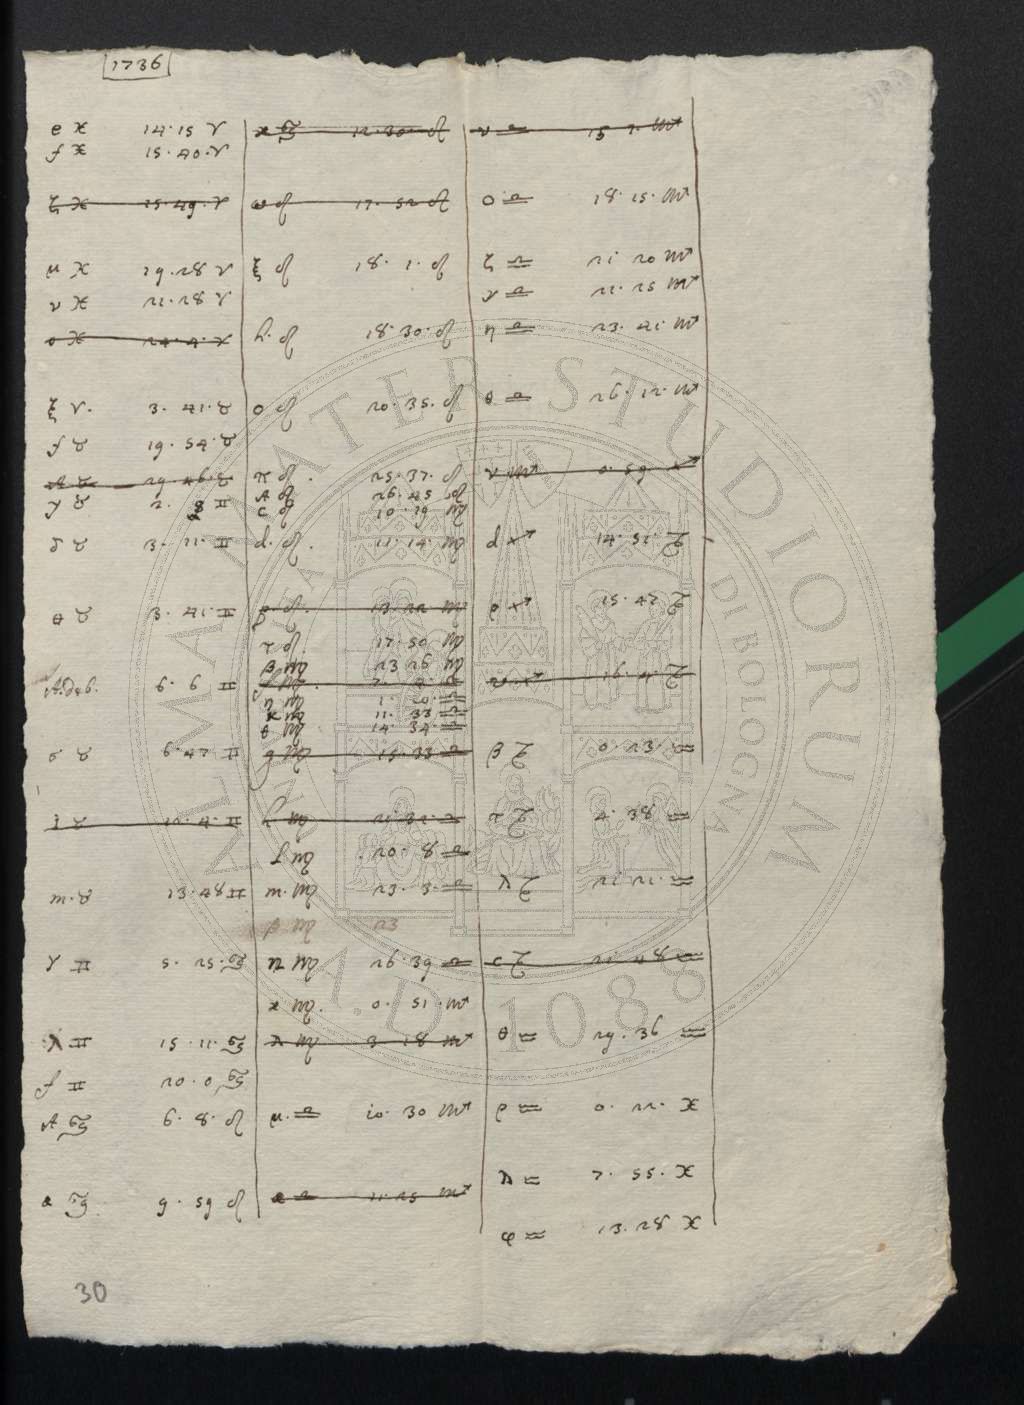 1736
e ♓ 14. 15 ♈
f ♓ 15. 40. ♈
ζ ♓ 15. 49. ♈
μ ♓ 19. 28 ♈
ν ♓ 21. 28 ♈
o ♓ 24. 4. ♈
ξ ♈. 3. 41. ♉
f ♉ 19. 54. ♉
A ♉ 29 46. ♉
γ ♉ 2. 8 ♊
δ ♉ 3. 11. ♊
θ ♉ 3. 41. ♊
Aldeb. 6. 6 ♊
σ ♉ 6. 47 ♊
l ♉ 12. 4. ♊
m. ♉ 13. 48 ♊
γ ♊ 5. 25. ♋
λ ♊ 15. 11. ♋
f ♊ 20. 0 ♋
A ♋ 6. 8. ♌
α ♋. 9. 59 ♌
30
x ♋ 12. 30. ♌
ω ♌ 17. 52 ♌
ξ ♌ 18. 1. ♌
h. ♌ 18. 30. ♌
o ♌ 20. 35. ♌
π ♌. 25. 37. ♌
A ♌ 26. 45 ♌
c ♌ 10 19 ♍
d. ♌. 11. 14. ♍
p ♌. 13. 22 ♍
τ ♌. 17. 50 ♍
β ♍ 23 26 ♍
η ♍ 1. 20. ♎
x ♍ 11. 33 ♎
θ ♍ 14. 34. ♎
g ♍ 15. 33 ♎
l ♍ 20. 8 ♎
m. ♍ 23. 3. ♎
p ♍ 23
n ♍ 26. 39 ♎
x ♍. 0. 51. ♏
λ ♍ 3. 18 ♏
μ. ♎ 10. 30 ♏
α ♎ 11. 25 ♏
ν ♎ 15 7. ♏
o ♎ 18. 15. ♏
ζ ♎ 21 20 ♏
γ ♎ 21. 25 ♏
η ♎ 23. 41. ♏
θ ♎ 26. 12. ♏
ν ♏ 0. 59 ♐
d ♐ 14. 51. ♑
ρ ♐ 15. 47 ♑
υ ♐ 16. 4. ♑
β ♑ 0. 23 ♒
τ ♑ 4. 38 ♒
λ ♑ 21. 21. ♒
c ♑ 21. 48 ♒
θ ♒ 29. 36 ♒
ρ ♒ 0. 22. ♓
λ ♒ 7. 55. ♓
φ ♒ 13. 28 ♓
ALMA MATER STUDIORUM
UNIVERSITÀ DI BOLOGNA
A.D. 1088